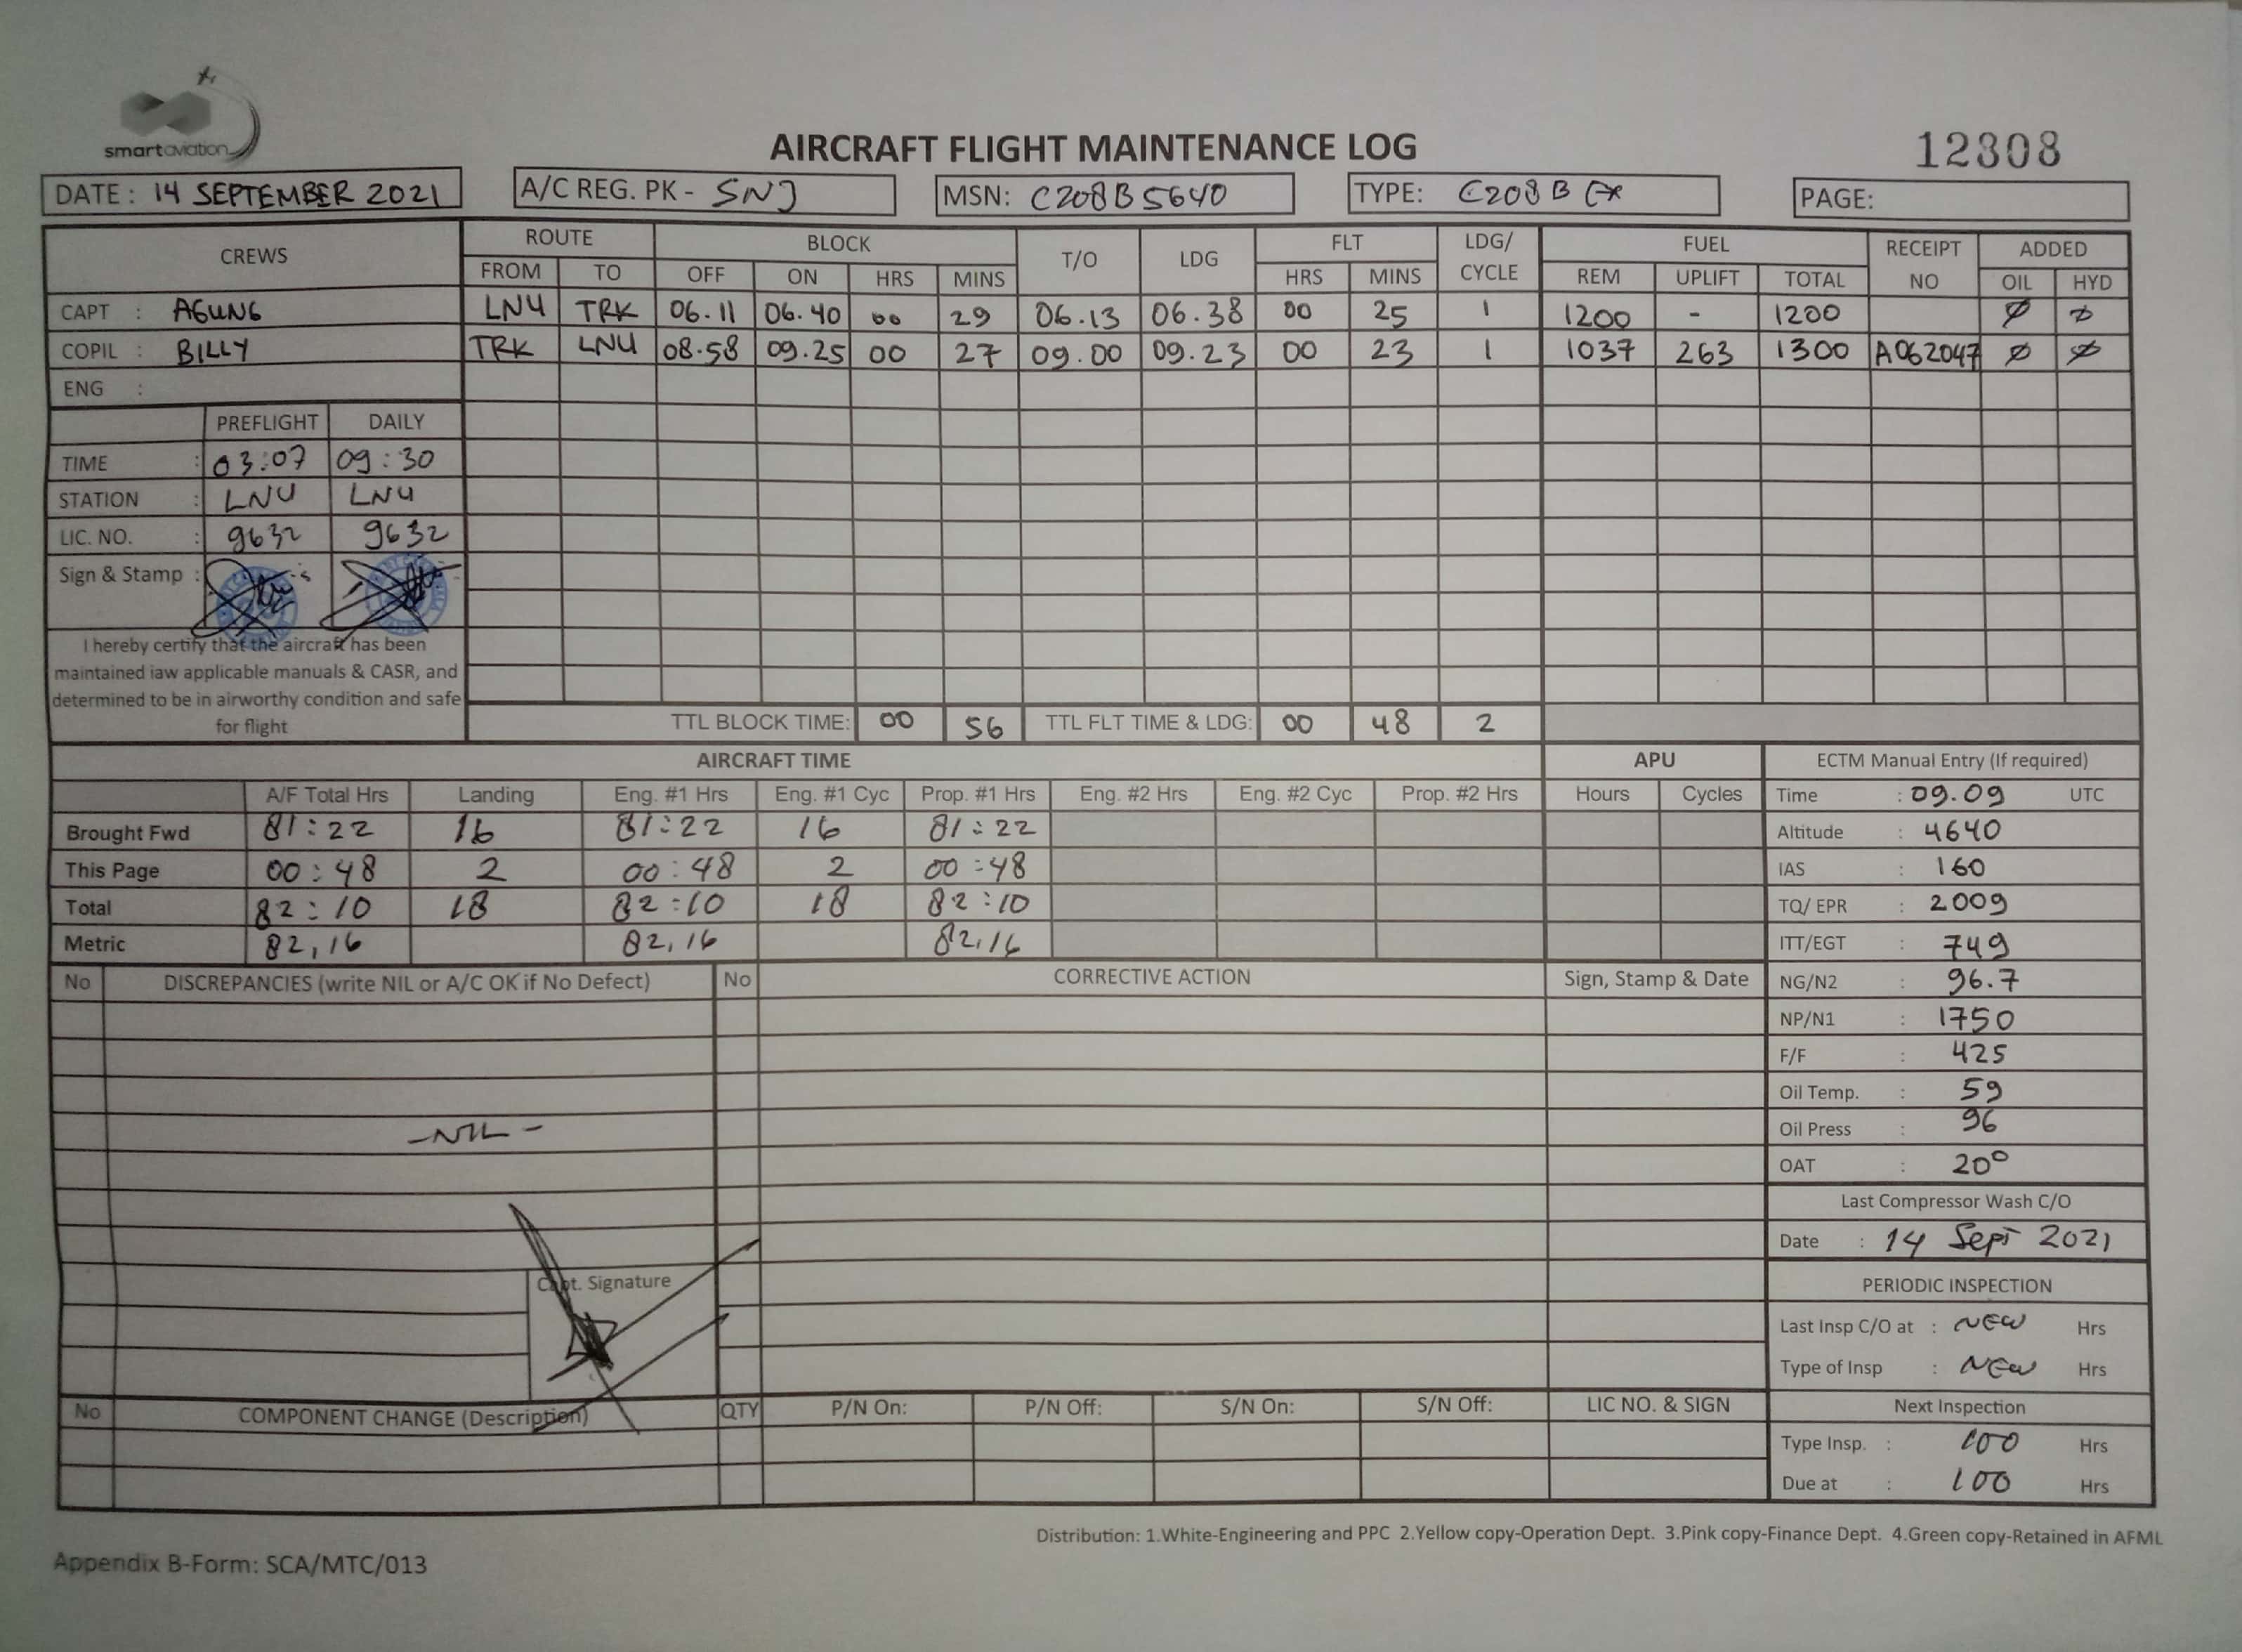 smartaviation
AIRCRAFT FLIGHT MAINTENANCE LOG
12308
DATE : 14 SEPTEMBER 2021 A/C REG. PK - SNJ MSN: C208B5640 TYPE: C208B EX PAGE:
CREWS ROUTE BLOCK T/O LDG FLT LDG/ CYCLE FUEL RECEIPT NO ADDED
FROM TO OFF ON HRS MINS HRS MINS REM UPLIFT TOTAL OIL HYD
CAPT : AGUNG LNU TRK 06.11 06.40 00 29 06.13 06.38 00 25 1 1200 - 1200 Ø Ø
COPIL : BILLY TRK LNU 08.58 09.25 00 27 09.00 09.23 00 23 1 1037 263 1300 A062047 Ø Ø
ENG :
PREFLIGHT DAILY
TIME : 03:07 09:30
STATION : LNU LNU
LIC. NO. : 9632 9632
Sign & Stamp :
I hereby certify that the aircraft has been
maintained iaw applicable manuals & CASR, and
determined to be in airworthy condition and safe
for flight
TTL BLOCK TIME: 00 56 TTL FLT TIME & LDG: 00 48 2
AIRCRAFT TIME APU ECTM Manual Entry (If required)
A/F Total Hrs Landing Eng. #1 Hrs Eng. #1 Cyc Prop. #1 Hrs Eng. #2 Hrs Eng. #2 Cyc Prop. #2 Hrs Hours Cycles Time : 09.09 UTC
Brought Fwd 81:22 16 81:22 16 81:22 Altitude : 4640
This Page 00:48 2 00:48 2 00:48 IAS : 160
Total 82:10 18 82:10 18 82:10 TQ/ EPR : 2009
Metric 82,16 82,16 82,16 ITT/EGT : 749
No DISCREPANCIES (write NIL or A/C OK if No Defect) No CORRECTIVE ACTION Sign, Stamp & Date NG/N2 : 96.7
NP/N1 : 1750
F/F : 425
Oil Temp. : 59
- NIL - Oil Press : 96
OAT : 20°
Last Compressor Wash C/O
Date : 14 Sept 2021
Capt. Signature PERIODIC INSPECTION
Last Insp C/O at : NEW Hrs
Type of Insp : NEW Hrs
No COMPONENT CHANGE (Description) QTY P/N On: P/N Off: S/N On: S/N Off: LIC NO. & SIGN Next Inspection
Type Insp. : 100 Hrs
Due at : 100 Hrs
Distribution: 1.White-Engineering and PPC 2.Yellow copy-Operation Dept. 3.Pink copy-Finance Dept. 4.Green copy-Retained in AFML
Appendix B-Form: SCA/MTC/013